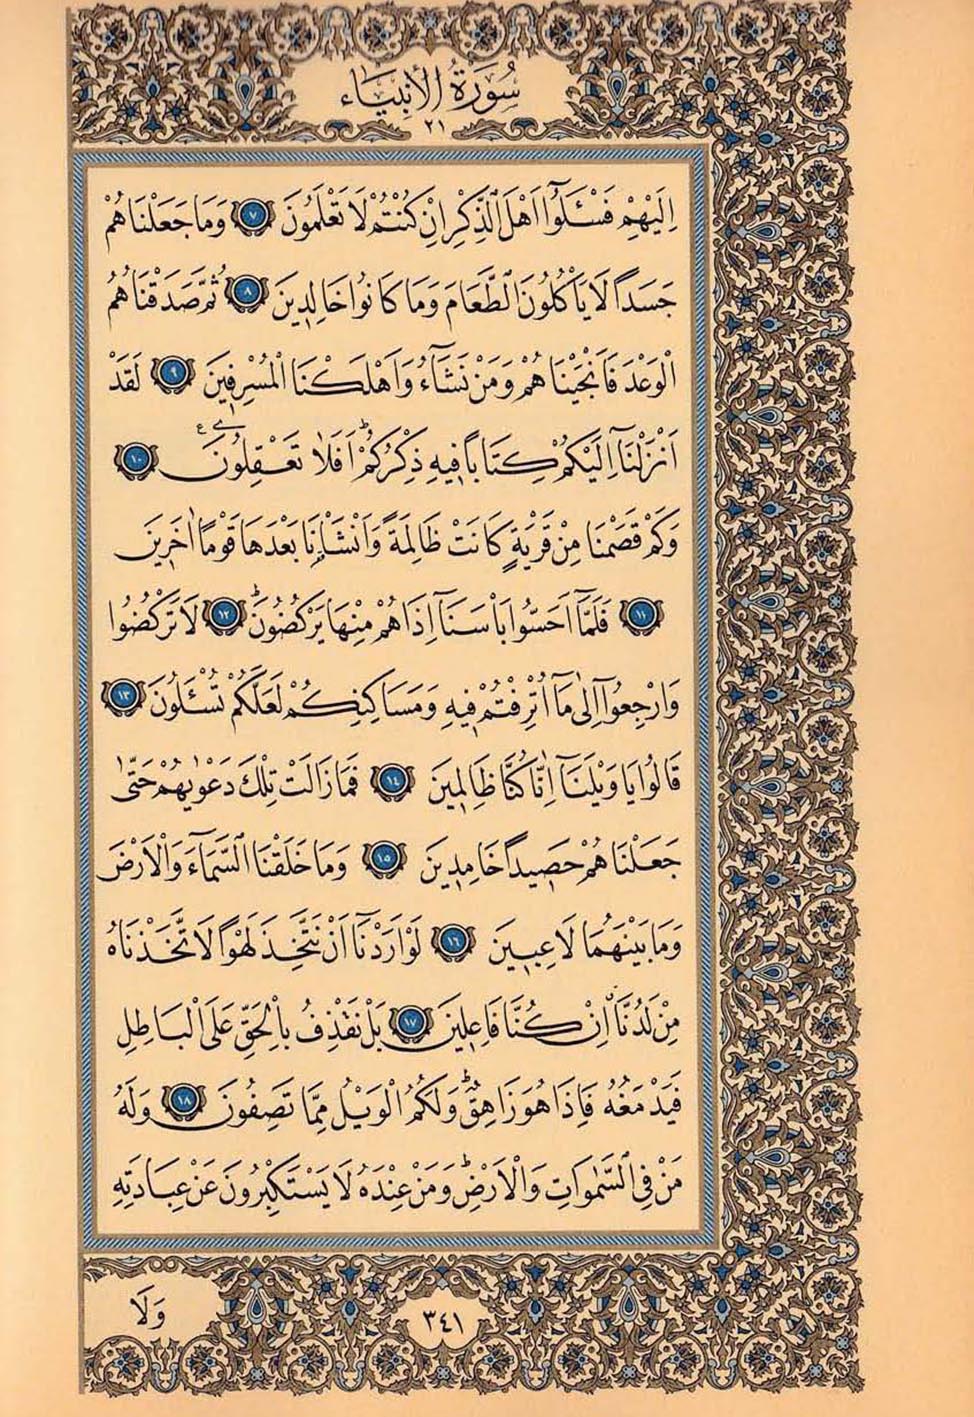 سُورَةُ الْأَنْبِيَاءِ
٢١
اِلَيْهِمْ فَسْـَٔلُٓوا اَهْلَ الذِّكْرِ اِنْ كُنْتُمْ لَا تَعْلَمُونَ ٧ وَمَا جَعَلْنَاهُمْ
جَسَداً لَا يَأْكُلُونَ الطَّعَامَ وَمَا كَانُوا خَالِدِينَ ٨ ثُمَّ صَدَقْنَاهُمُ
الْوَعْدَ فَاَنْجَيْنَاهُمْ وَمَنْ نَشَٓاءُ وَاَهْلَكْنَا الْمُسْرِفِينَ ٩ لَقَدْ
اَنْزَلْنَٓا اِلَيْكُمْ كِتَاباً فِيهِ ذِكْرُكُمْۜ اَفَلَا تَعْقِلُونَ۟ ع ١٠
وَكَمْ قَصَمْنَا مِنْ قَرْيَةٍ كَانَتْ ظَالِمَةً وَاَنْشَأْنَا بَعْدَهَا قَوْماً اٰخَرِينَ
١١ فَلَمَّٓا اَحَسُّوا بَأْسَنَٓا اِذَا هُمْ مِنْهَا يَرْكُضُونَۜ ١٢ لَا تَرْكُضُوا
وَارْجِعُٓوا اِلٰى مَٓا اُتْرِفْتُمْ فِيهِ وَمَسَاكِنِكُمْ لَعَلَّكُمْ تُسْـَٔلُونَ ١٣
قَالُوا يَا وَيْلَنَٓا اِنَّا كُنَّا ظَالِمِينَ ١٤ فَمَا زَالَتْ تِلْكَ دَعْوٰيهُمْ حَتّٰى
جَعَلْنَاهُمْ حَصِيداً خَامِدِينَ ١٥ وَمَا خَلَقْنَا السَّمَٓاءَ وَالْاَرْضَ
وَمَا بَيْنَهُمَا لَاعِبِينَ ١٦ لَوْ اَرَدْنَٓا اَنْ نَتَّخِذَ لَهْواً لَاتَّخَذْنَاهُ
مِنْ لَدُنَّاۗ اِنْ كُنَّا فَاعِلِينَ ١٧ بَلْ نَقْذِفُ بِالْحَقِّ عَلَى الْبَاطِلِ
فَيَدْمَغُهُ فَاِذَا هُوَ زَاهِقٌۜ وَلَكُمُ الْوَيْلُ مِمَّا تَصِفُونَ ١٨ وَلَهُ
مَنْ فِي السَّمٰوَاتِ وَالْاَرْضِۜ وَمَنْ عِنْدَهُ لَا يَسْتَكْبِرُونَ عَنْ عِبَادَتِهِ
وَلَا
٣٤١